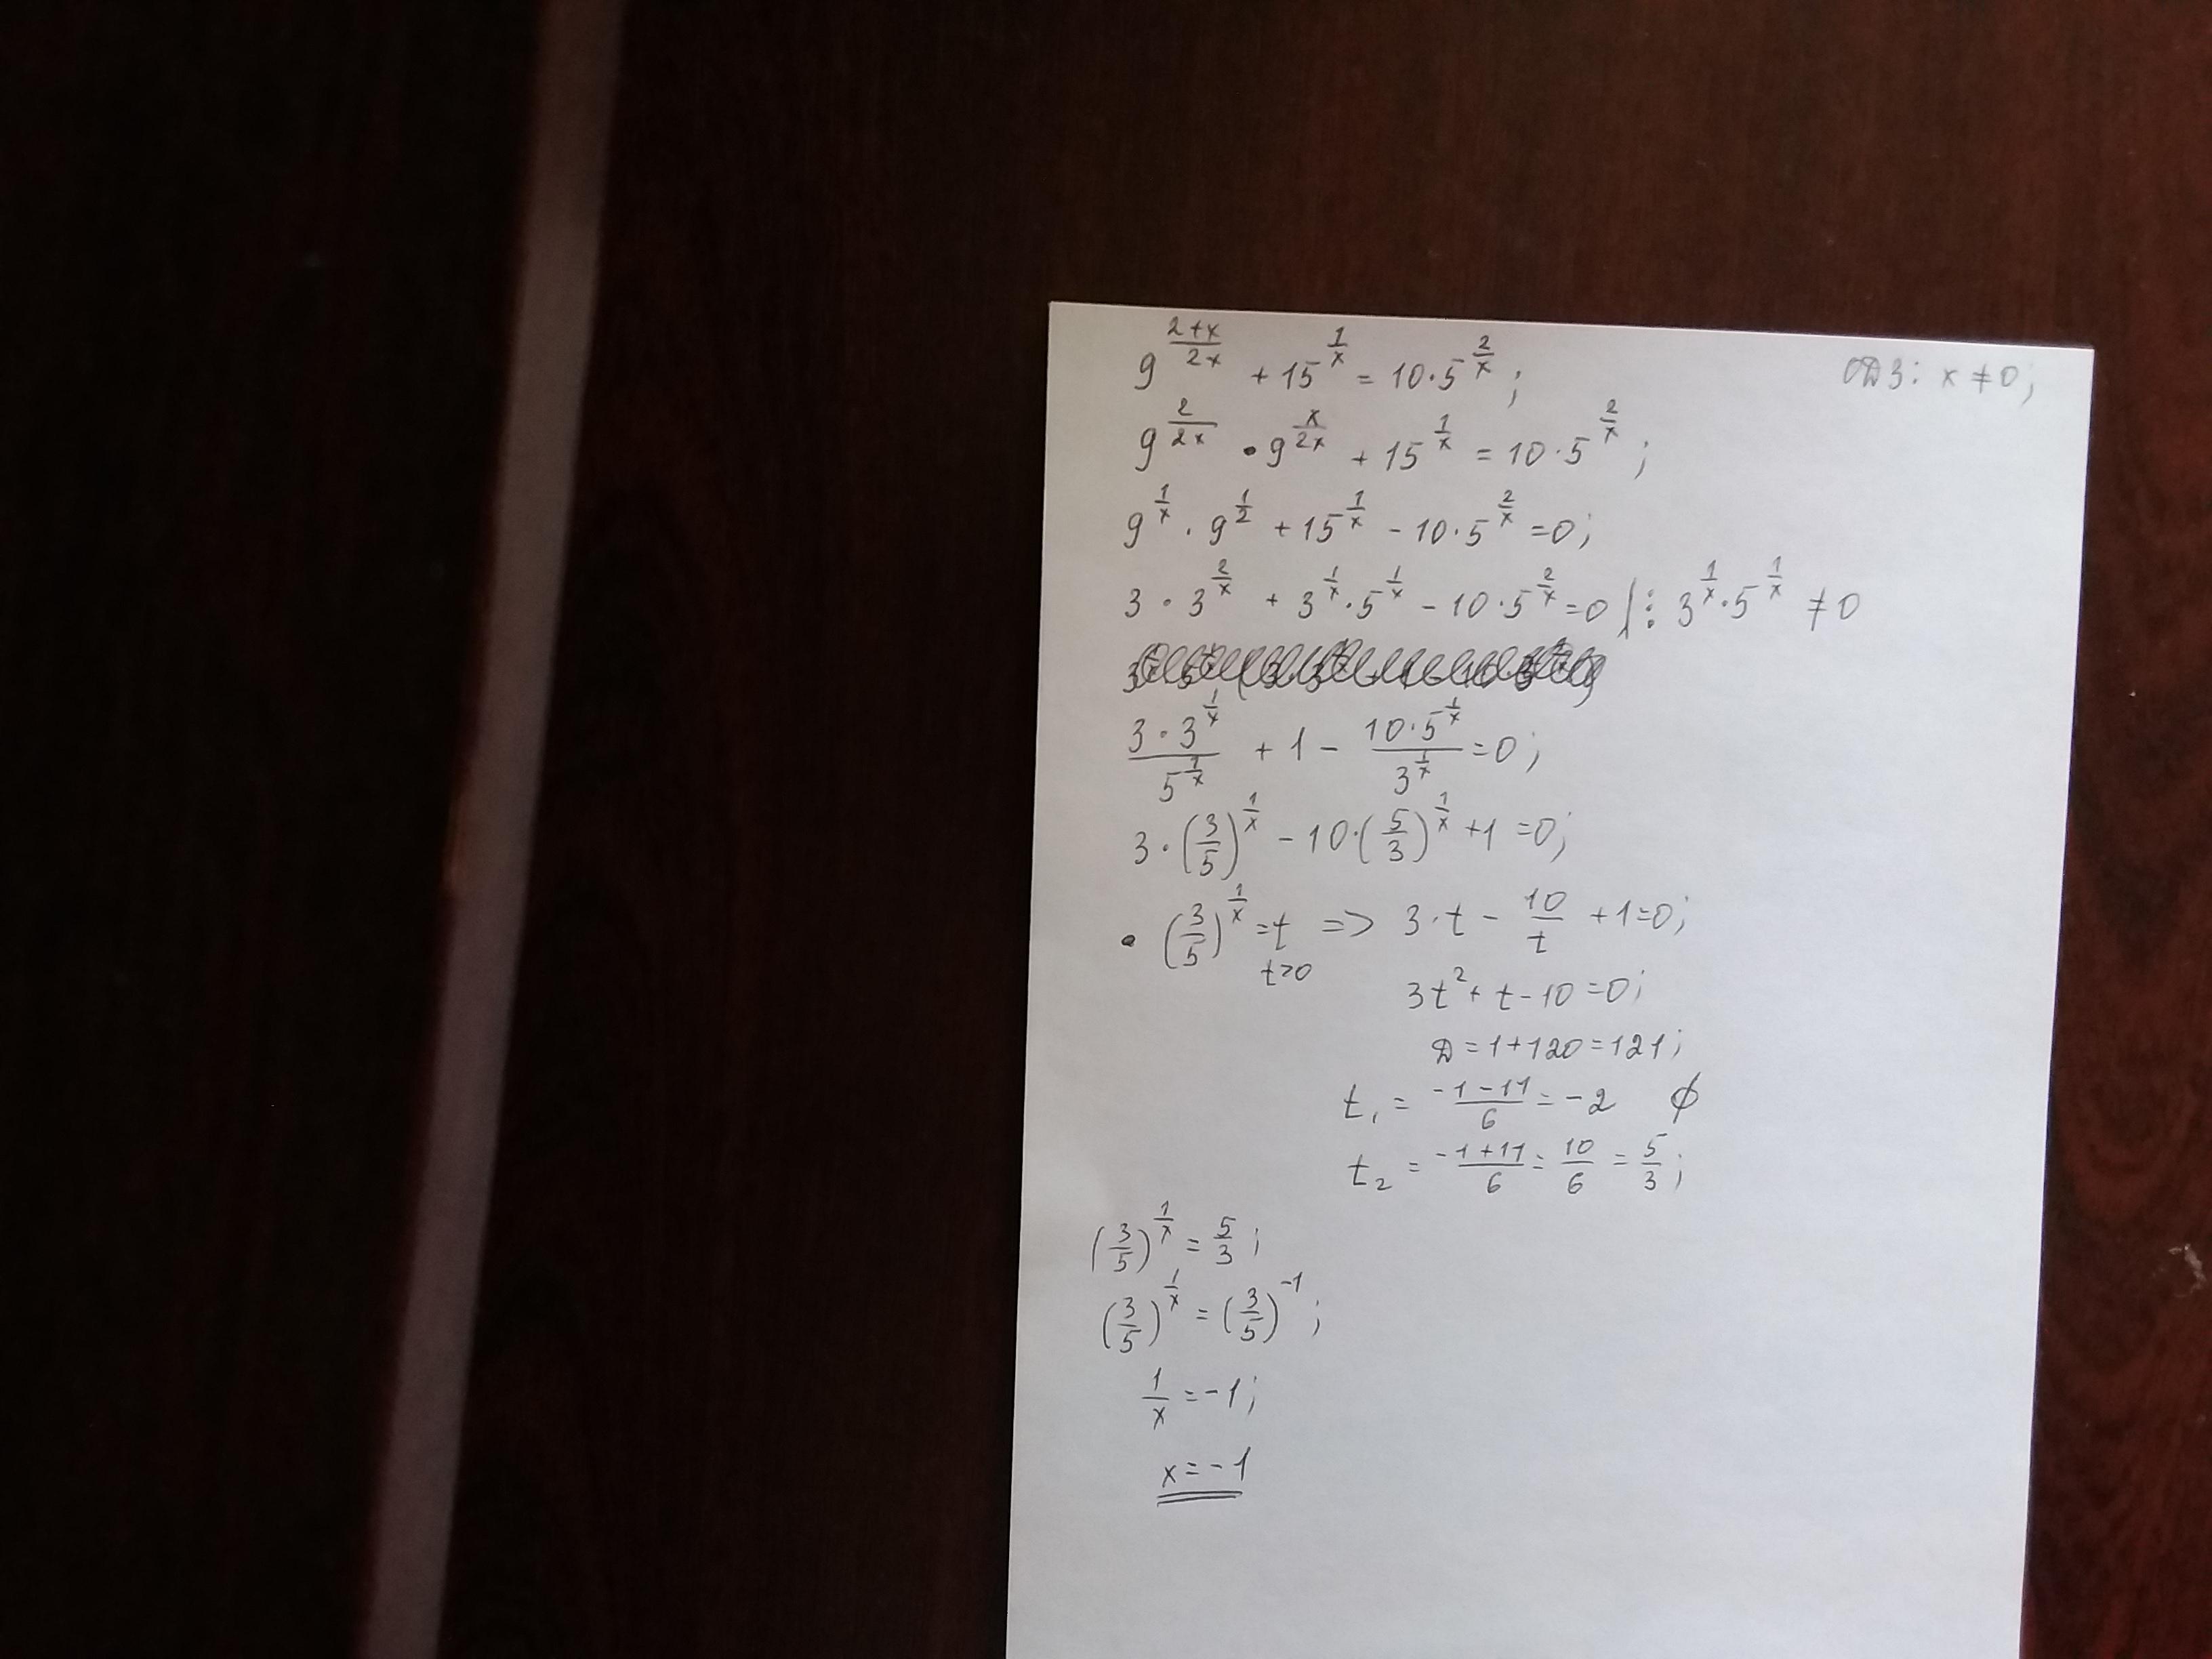 9^{\frac{2+x}{2x}} + 15^{\frac{1}{x}} = 10 \cdot 5^{\frac{2}{x}}; ОДЗ: x ≠ 0;
9^{\frac{2}{2x}} \cdot 9^{\frac{x}{2x}} + 15^{\frac{1}{x}} = 10 \cdot 5^{\frac{2}{x}};
9^{\frac{1}{x}} \cdot 9^{\frac{1}{2}} + 15^{\frac{1}{x}} - 10 \cdot 5^{\frac{2}{x}} = 0;
3 \cdot 3^{\frac{2}{x}} + 3^{\frac{1}{x}} \cdot 5^{\frac{1}{x}} - 10 \cdot 5^{\frac{2}{x}} = 0 | : 3^{\frac{1}{x}} \cdot 5^{\frac{1}{x}} ≠ 0
\frac{3 \cdot 3^{\frac{1}{x}}}{5^{\frac{1}{x}}} + 1 - \frac{10 \cdot 5^{\frac{1}{x}}}{3^{\frac{1}{x}}} = 0;
3 \cdot (\frac{3}{5})^{\frac{1}{x}} - 10 \cdot (\frac{5}{3})^{\frac{1}{x}} + 1 = 0;
• (\frac{3}{5})^{\frac{1}{x}} = t => 3 \cdot t - \frac{10}{t} + 1 = 0;
t > 0
3t^2 + t - 10 = 0;
D = 1 + 120 = 121;
t_1 = \frac{-1 - 11}{6} = -2 ∅
t_2 = \frac{-1 + 11}{6} = \frac{10}{6} = \frac{5}{3};
(\frac{3}{5})^{\frac{1}{x}} = \frac{5}{3};
(\frac{3}{5})^{\frac{1}{x}} = (\frac{3}{5})^{-1};
\frac{1}{x} = -1;
x = -1